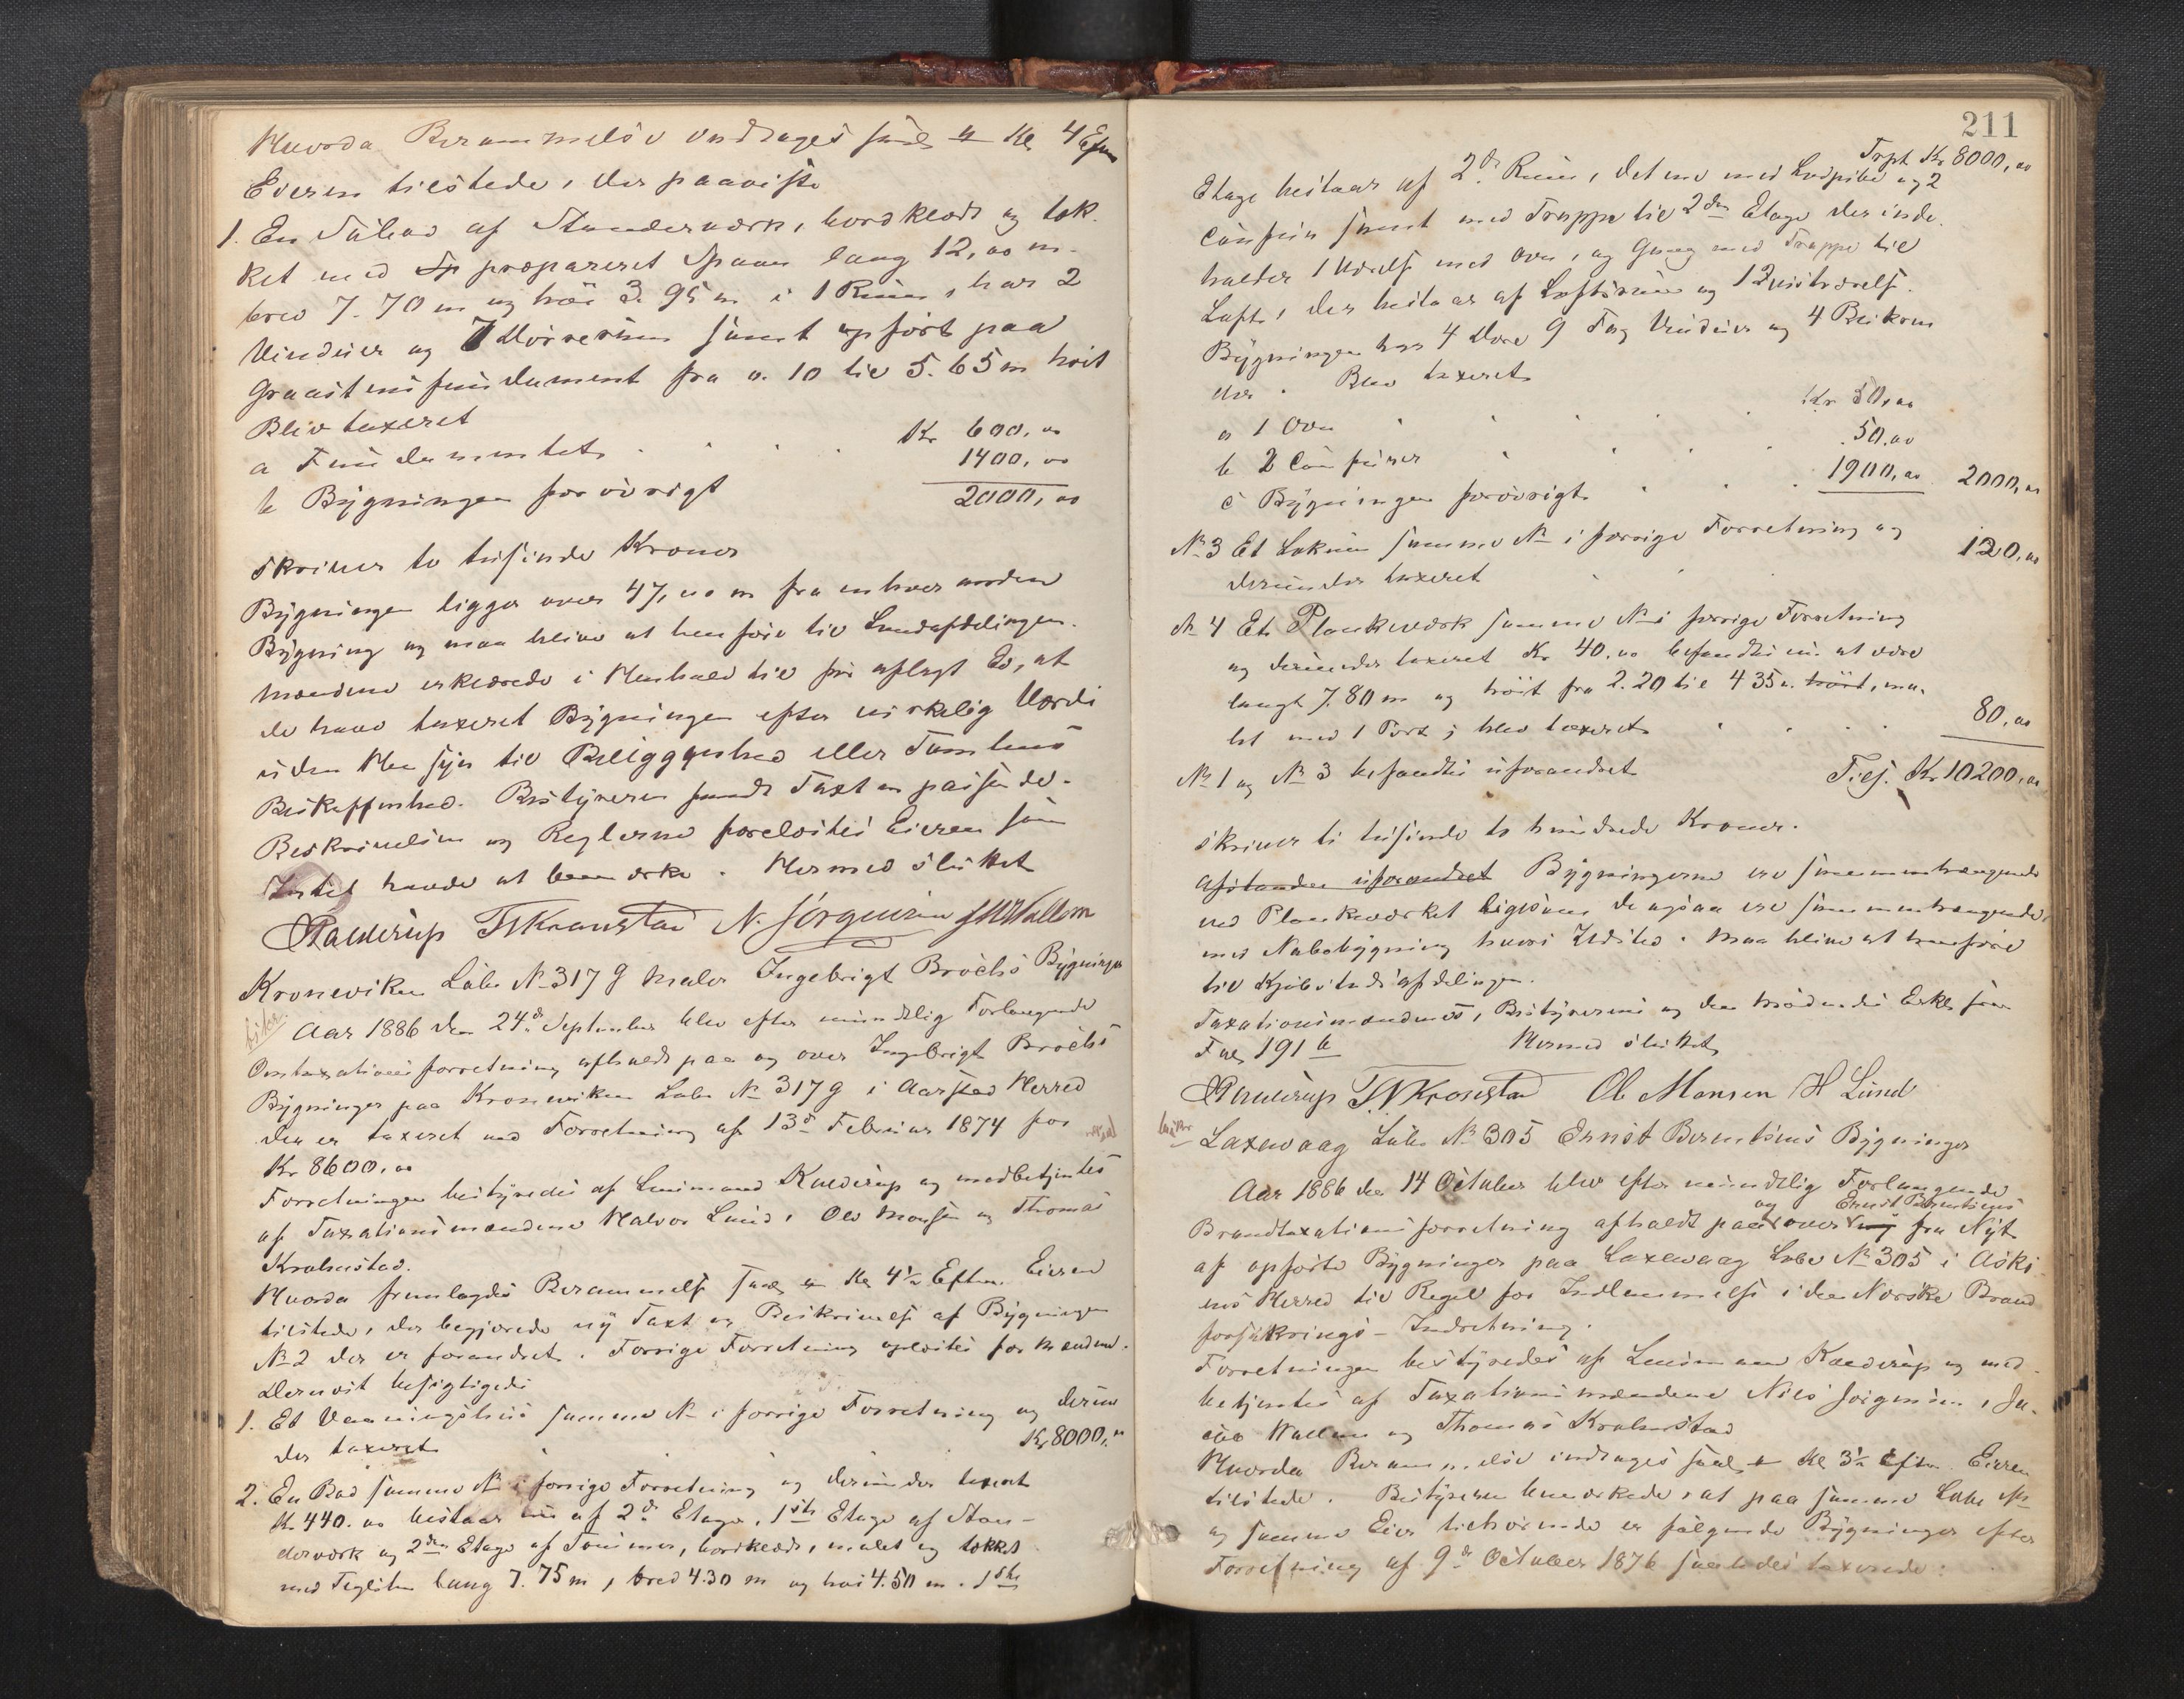 Hvorda Berammelse indtages saal. Kl 4 Efm
Eieren tilstede, der paaviste
1. En Søbod af Standerværk, bordklædt og tæk-
ket med Sp præpareret Spaan lang 12,00 m.
bred 7.70 m og høi 3.95 m i 1 Rum, har 2
Vinduer og 7 Dørrerum samt opført paa
Graastensfundament fra 0.10 til 5.65 m høit
Blev taxeret
a Fundamentet . . . Kr 600,00
b Bygningen forøvrigt 1400,00
2000,00
skriver to tusinde Kroner
Bygningen ligger over 47,00 m fra enhver anden
Bygning og maa blive at henføre til Landafdelingen.
Mændene erklærede i Henhold til sin aflagt Ed, at
de have taxeret Bygningen efter virkelig Værdi
uden Hensyn til Beliggenhed eller Tomtens
Beskaffenhed. Bestyreren fandt Taxten passende.
Beskrivelsen og Reglerne forelæstes Eieren som
Intet havde at bemærke. Hermed sluttet
Knederup TKronstad N. Jörgensen JHWallem
Kroneviken Løbe No 317 g Maler Ingebrigt Brochs Bygninger
Aar 1886 den 24de September blev efter mundtlig Forlangende
Omtaxationsforretning afholdt paa og over Ingebrigt Brochs
Bygninger paa Kroneviken Løbe No 317 g i Aarstad Herred
der er taxeret ved Forretning af 13de Februar 1874 for
Kr 8600,00
Forretningen bestyredes af Lensmand Knederup og medbetjentes
af Taxationsmændene Halvor Lund, Ole Monsen og Thomas
Krohnstad.
Hvorda fremlagdes Berammelse saal. Kl 4½ Efterm. Eieren
tilstede, der begjærede ny Taxt og Beskrivelse af Bygningen
No 2 der er forandret. Forrige Forretning oplæstes for Mændene.
Dernæst besigtigedes
1. Et Vaaningshus samme No i forrige Forretning og derun-
der taxeret . . . Kr 8000,00
2. En Bod samme No i forrige Forretning og derunder taxeret
Kr 440.00 bestaar nu af 2de Etager, 1ste Etage af Stan-
derværk og 2den Etage af Tømmer, bordklædt, malet og tækket
med Teglsten lang 7.75 m, bred 4.30 m og høi 4.50 m. 1ste
211
Trpt Kr 8000,00
Etage bestaar af 2de Rum, det ene med Ledpibe og 2
Comfurer samt med Trappe til 2den Etage der inde-
holder 1 Værelse med Ovn, og Gang med Trappe til
Loft, der bestaar af Loftsrum og 1 Qvistværelse.
Bygningen har 4 Døre 9 Fag Vinduer og 4 Beikom
der. Blev taxeret
a 1 Ovn . . . Kr 50,00
b 2 Comfurer . . . 50,00
c Bygningen forøvrigt . . . 1900,00 2000,00
No 3 Et Lokum samme No i forrige Forretning og
derunder taxeret . . . 120,00
No 4 Et Plankeværk samme No i forrige Forretning
og derunder taxeret Kr 40.00 befandtes nu at være
langt 7.80 m og høit fra 2.20 til 4 35 m. høit, ma-
let med 1 Port; blev taxeret . . . 80,00
No 1 og No 3 befandtes uforandret Tils. Kr 10200,00
skriver ti tusinde to hundrede Kroner.
Afstanden uforandret Bygningerne ere sammenhængende
ved Plankeværket ligesom de ogsaa ere sammenhængende
med Nabobygning hvori Ildsted. Maa blive at henføre
til Kjøbstadsafdelingen.
Taxationsmændenes, Bestyrerens og den mødendes Erkl. som
Fol. 191 b Hermed sluttet
Knederup T.Kronstad Ole Monsen H Lund
Laxevaag Løbe No 305 Ernst Berentsens Bygninger
Aar 1886 den 14 October blev efter mundtlig Forlangende
og Ernst Berentsens
Brandtaxationsforretning afholdt paa over fra Nyt
af opførte Bygninger paa Laxevaag Løbe No 305 i Aski-
ens Herred til Regel for Indlemmelse i den Norske Brand
forsikrings-Indretning.
Forretningen bestyredes af Lensmand Knederup og med-
betjentes af Taxationsmændene Nils Jørgensen, Ja-
cob Wallem og Thomas Krohnstad
Hvorda Berammelse indtages saal. Kl 3½ Efterm. Eieren
tilstede. Bestyreren bemærkede, at paa samme Løbe No
og samme Eier tilhørende er følgende Bygninger efter
Forretning af 9de October 1876 saaledes taxerede: